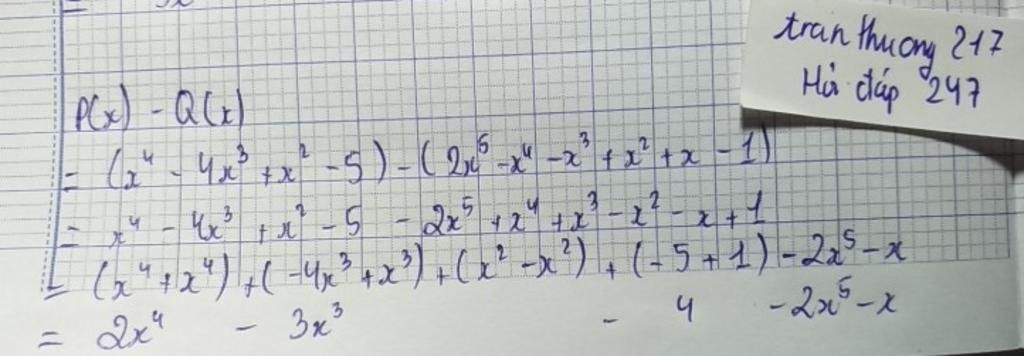 tran thuong 217
Hỏi đáp 247
P(x) - Q(x)
= (x⁴ - 4x³ + x² - 5) - (2x⁵ - x⁴ - x³ + x² + x - 1)
= x⁴ - 4x³ + x² - 5 - 2x⁵ + x⁴ + x³ - x² - x + 1
= (x⁴ + x⁴) + (-4x³ + x³) + (x² - x²) + (-5 + 1) - 2x⁵ - x
= 2x⁴ - 3x³ - 4 - 2x⁵ - x